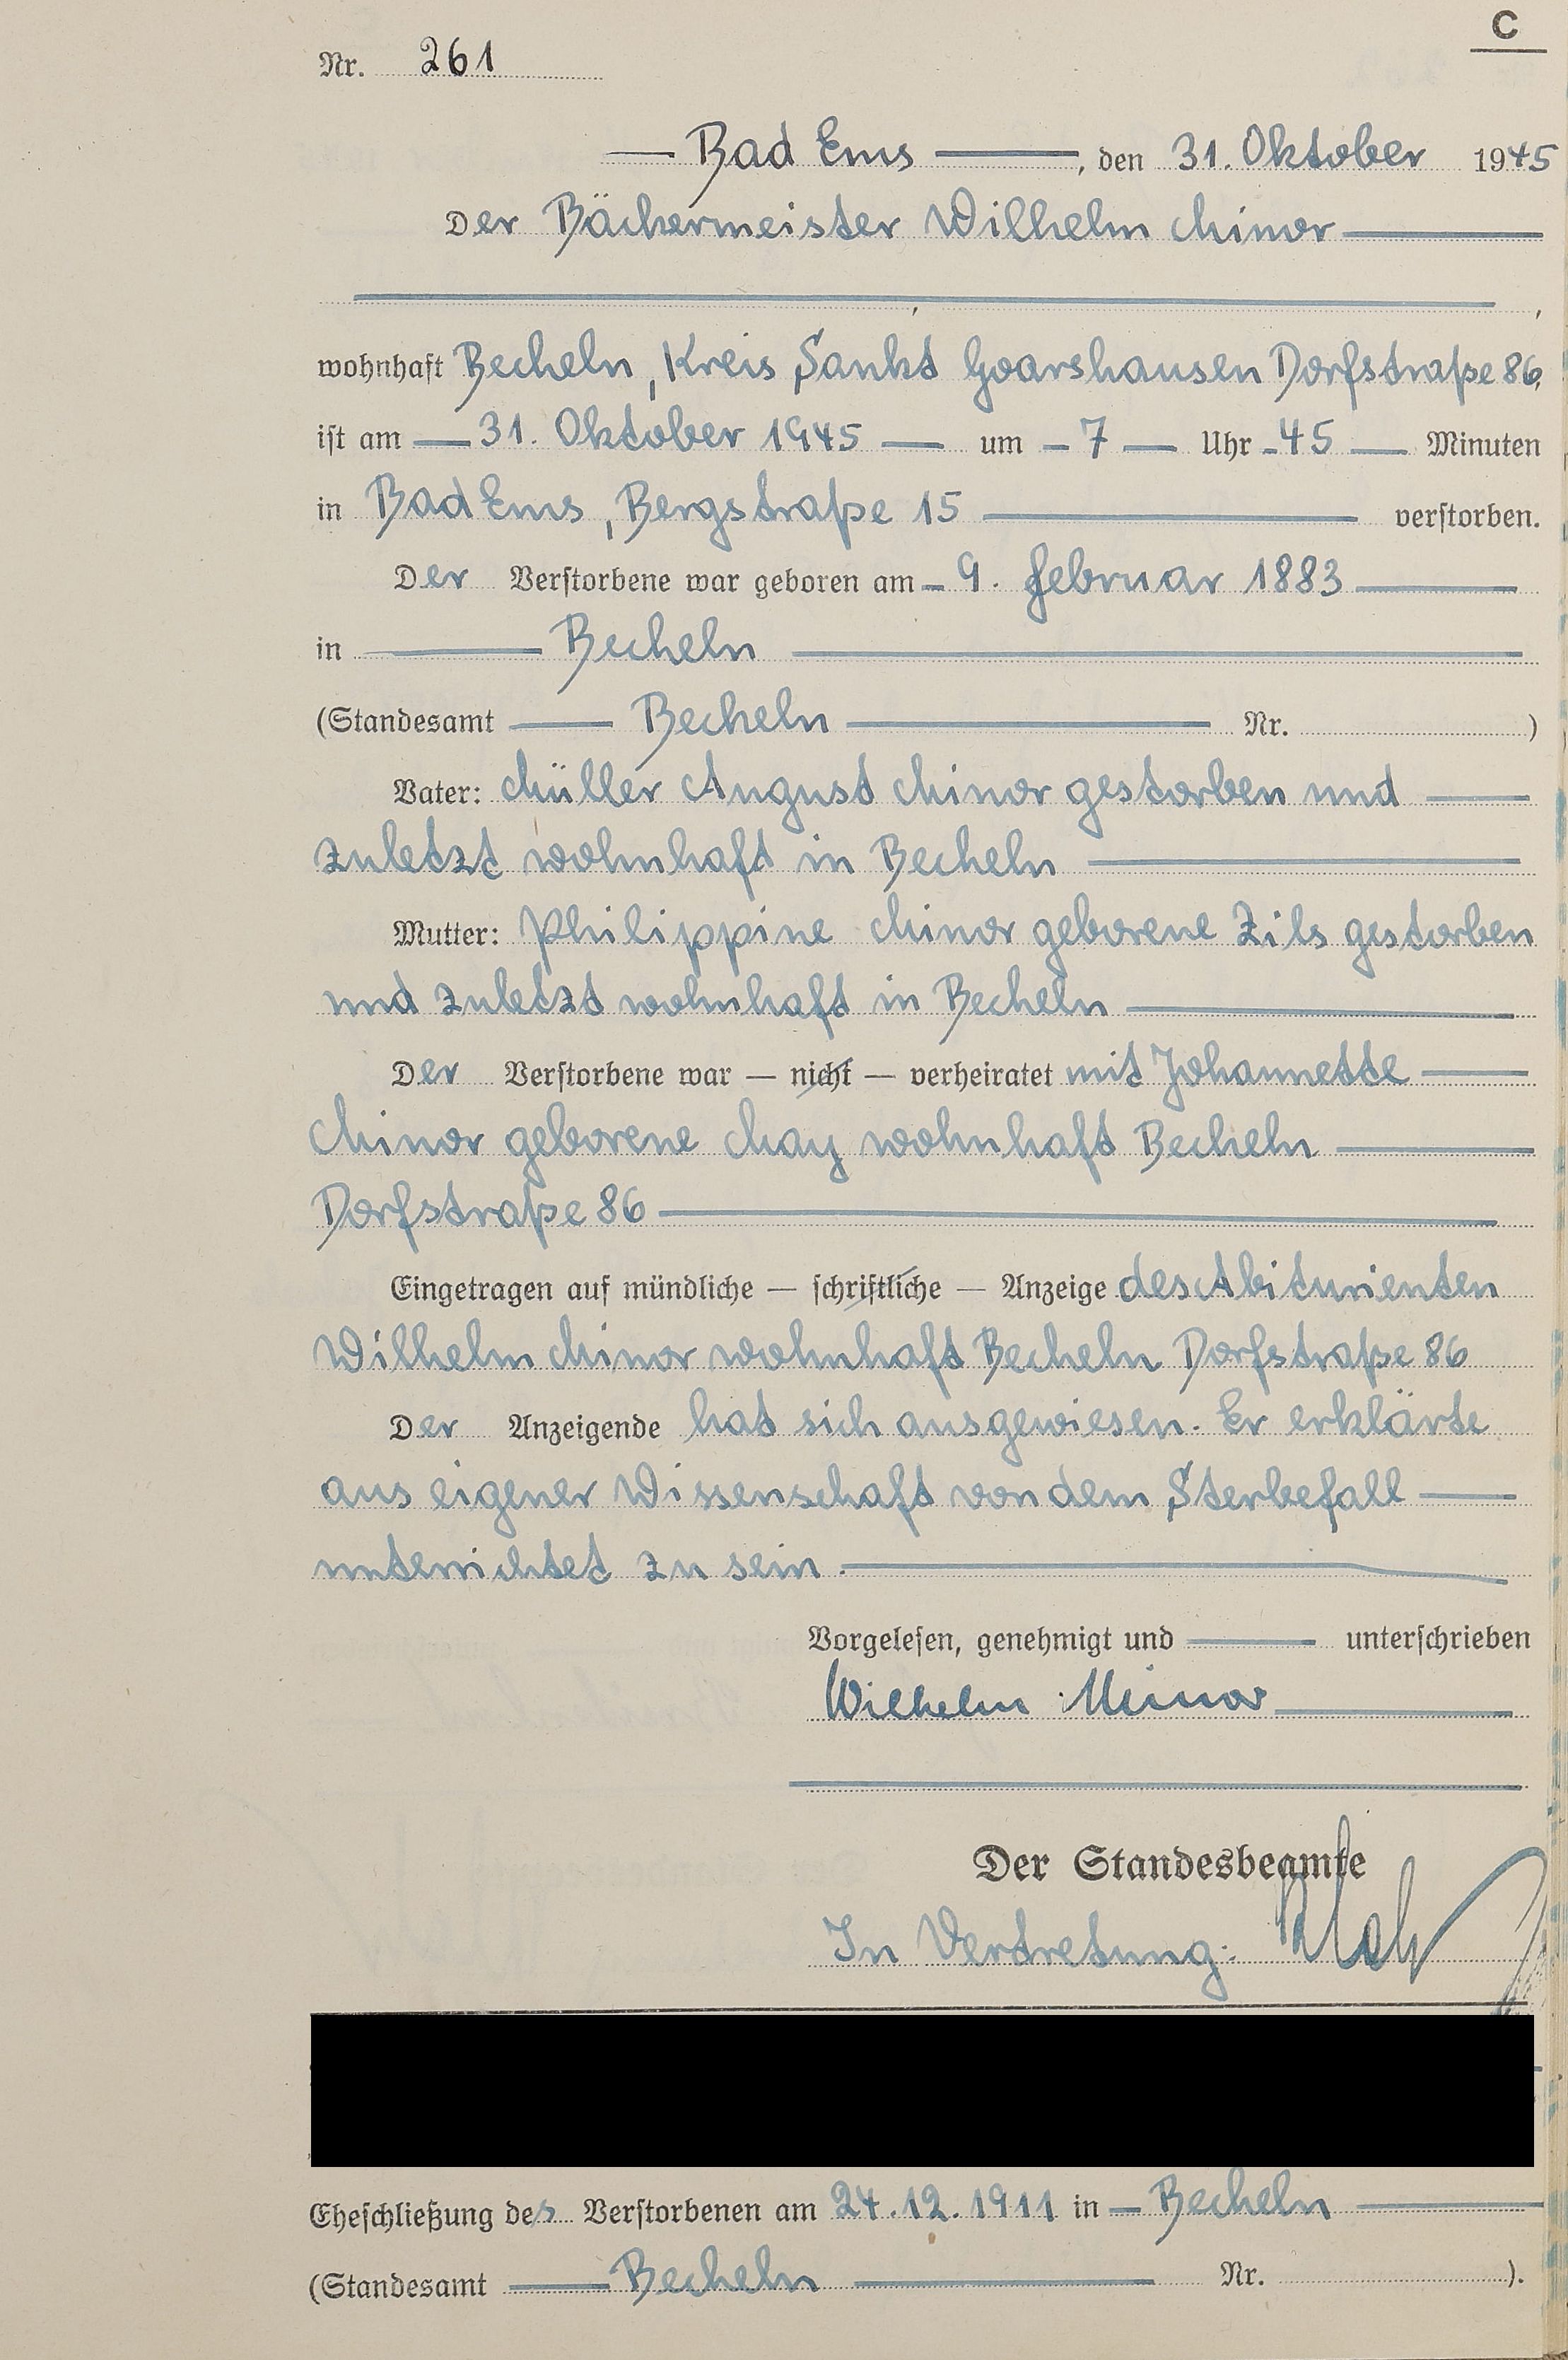 C
Nr. 261
Bad Ems, den 31. Oktober 1945
Der Bäckermeister Wilhelm Minor
,
wohnhaft Becheln, Kreis Sankt Goarshausen Dorfstraße 86,
ist am 31. Oktober 1945 um 7 Uhr 45 Minuten
in Bad Ems, Bergstraße 15 verstorben.
Der Verstorbene war geboren am 9. Februar 1883
in Becheln
(Standesamt Becheln Nr. )
Vater: Müller August Minor gestorben und
zuletzt wohnhaft in Becheln
Mutter: Philippine Minor geborene Zils gestorben
und zuletzt wohnhaft in Becheln
Der Verstorbene war — nicht — verheiratet mit Johannette
Minor geborene May wohnhaft Becheln
Dorfstraße 86
Eingetragen auf mündliche — schriftliche — Anzeige des Abiturienten
Wilhelm Minor wohnhaft Becheln Dorfstraße 86
Der Anzeigende hat sich ausgewiesen. Er erklärte
aus eigener Wissenschaft von dem Sterbefall
unterrichtet zu sein.
Vorgelesen, genehmigt und unterschrieben
Wilhelm Minor
Der Standesbeamte
In Vertretung:
Eheschließung des Verstorbenen am 24.12.1911 in Becheln
(Standesamt Becheln Nr. ).